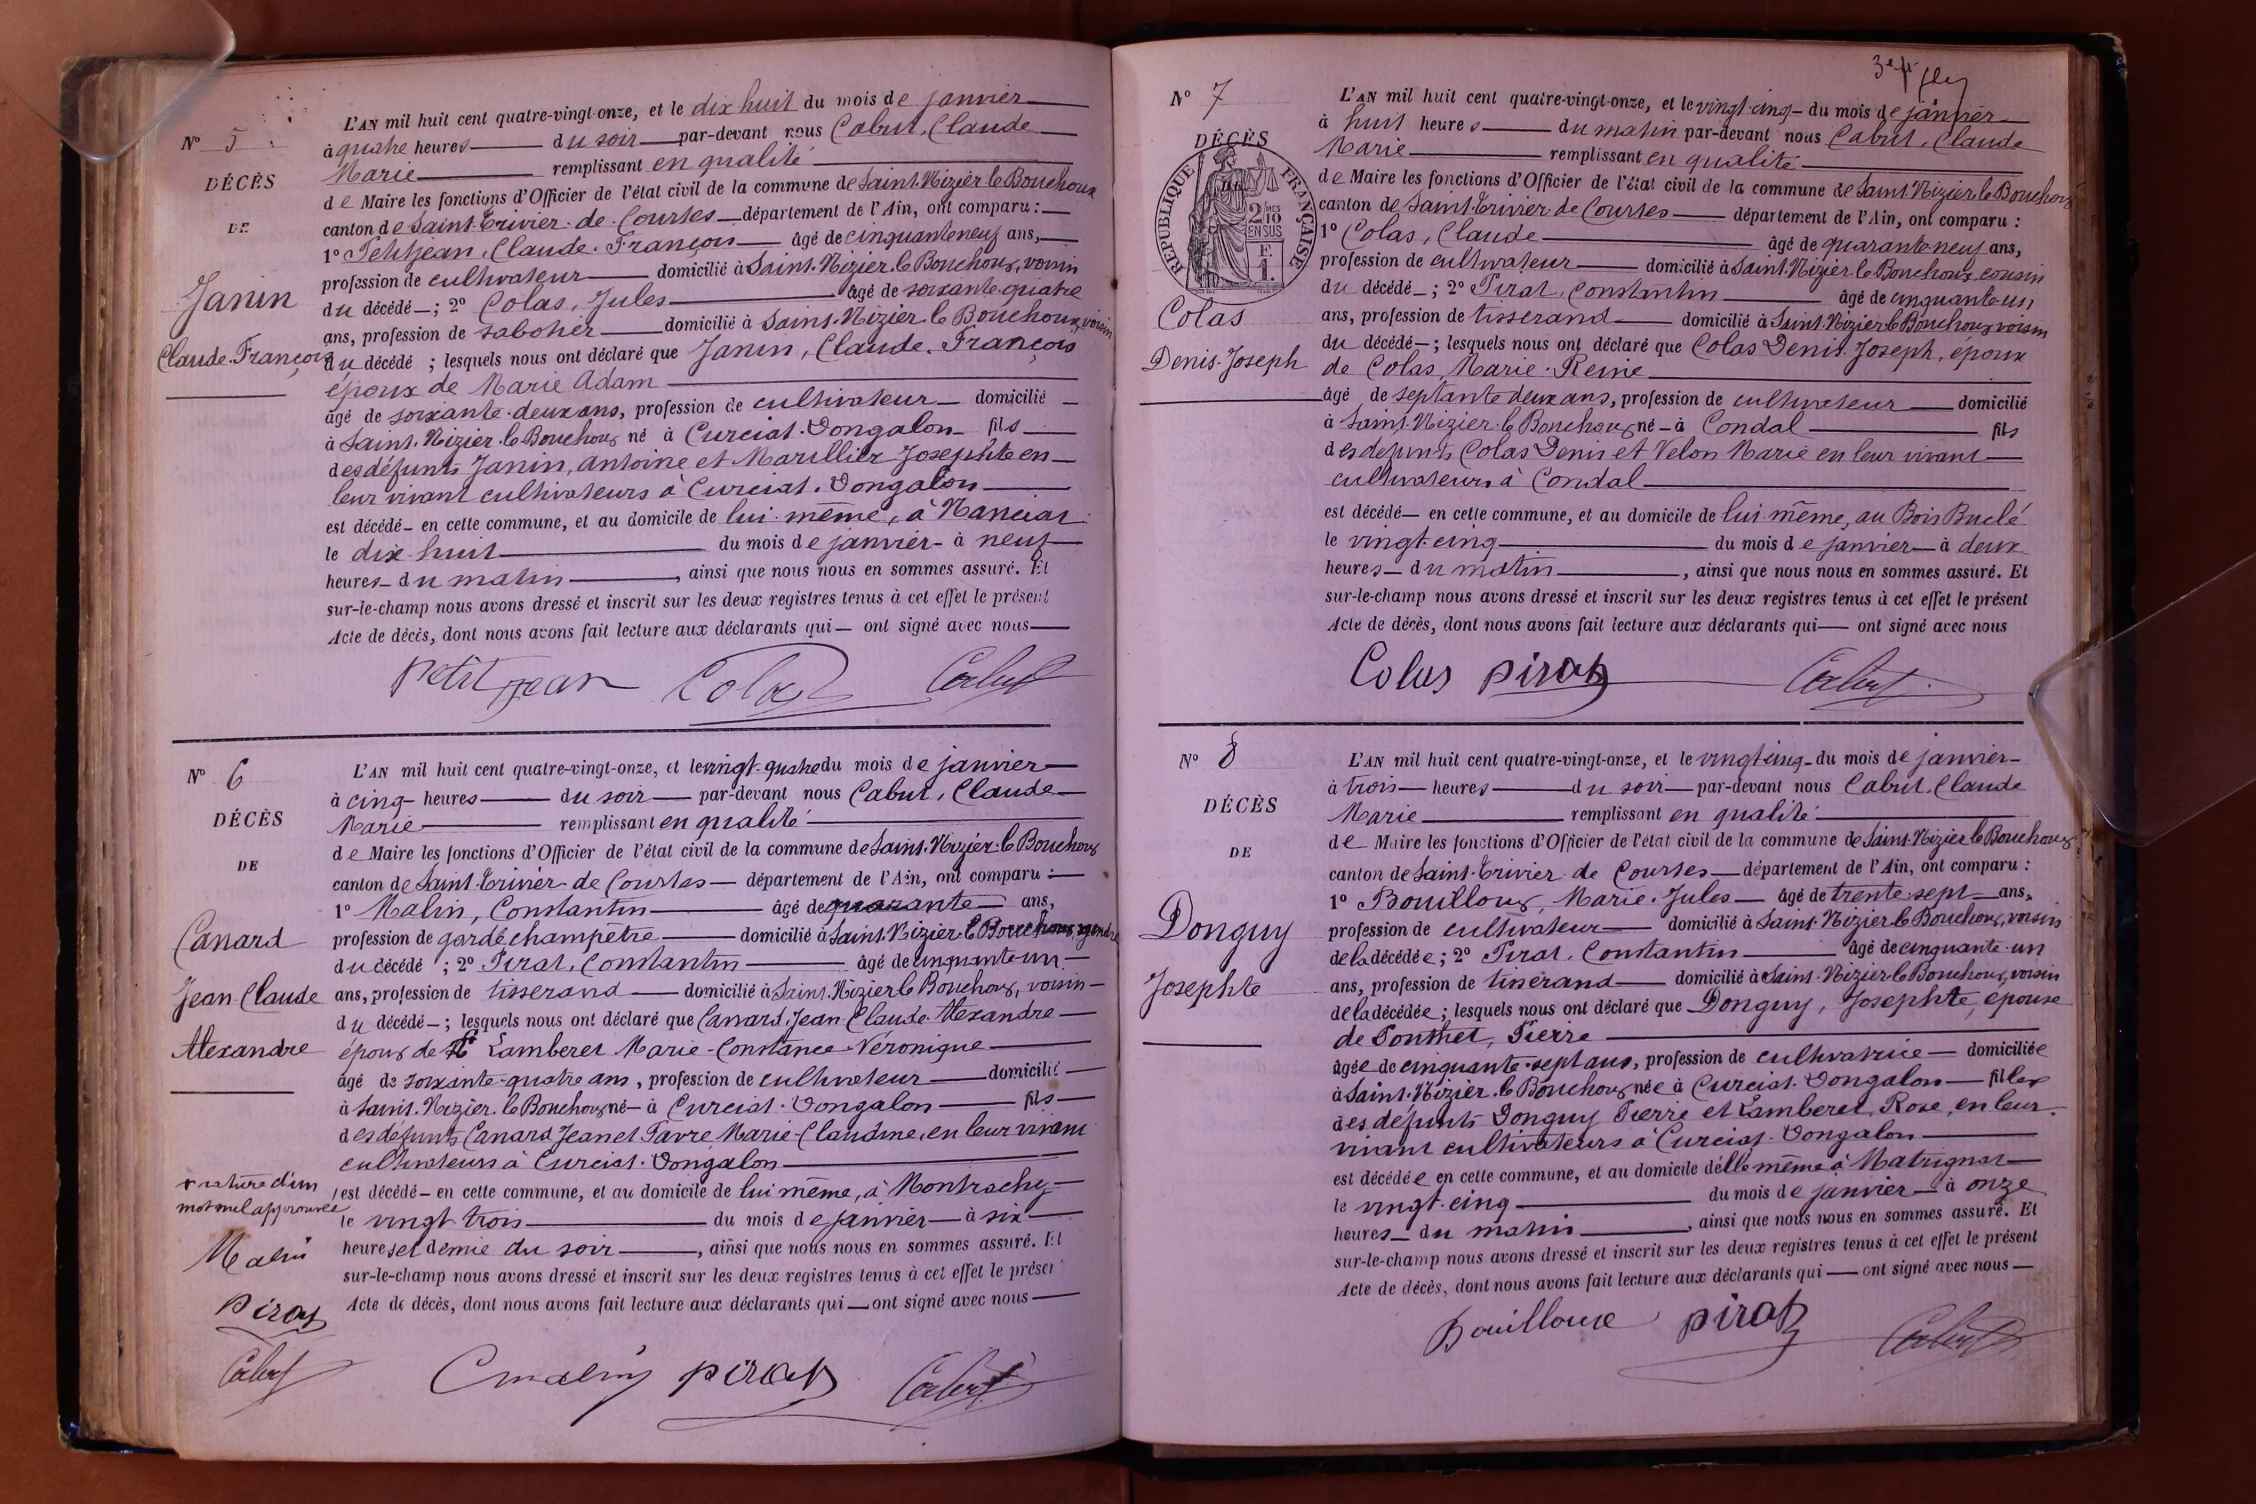 N° 5
DÉCÈS
DE
Janin
Claude-François
L'AN mil huit cent quatre-vingt-onze, et le dix huit du mois de janvier
à quatre heures du soir par-devant nous Cabut, Claude
Marie remplissant en qualité
de Maire les fonctions d'Officier de l'état civil de la commune de Saint-Nizier le Bouchoux
canton de Saint-Trivier-de-Courtes département de l'Ain, ont comparu :
1° Petitjean, Claude-François âgé de cinquante neuf ans,
profession de cultivateur domicilié à Saint-Nizier-le-Bouchoux, voisin
du décédé ; 2° Colas, Jules âgé de soixante quatre
ans, profession de sabotier domicilié à Saint-Nizier-le-Bouchoux, voisin
du décédé ; lesquels nous ont déclaré que Janin, Claude-François
époux de Marie Adam
âgé de soixante-deux ans, profession de cultivateur domicilié
à Saint-Nizier-le-Bouchoux né à Curciat-Dongalon fils
des défunts Janin, Antoine et Marillier Josephte en
leur vivant cultivateurs à Curciat-Dongalon
est décédé en cette commune, et au domicile de lui même, à Nanciat
le dix huit du mois de janvier à neuf
heures du matin, ainsi que nous nous en sommes assuré. Et
sur-le-champ nous avons dressé et inscrit sur les deux registres tenus à cet effet le présent
Acte de décès, dont nous avons fait lecture aux déclarants qui ont signé avec nous
Petitjean Colas Cabut
N° 6
DÉCÈS
DE
Canard
Jean-Claude
Alexandre
L'AN mil huit cent quatre-vingt-onze, et le vingt-quatre du mois de janvier
à cinq heures du soir par-devant nous Cabut, Claude
Marie remplissant en qualité
de Maire les fonctions d'Officier de l'état civil de la commune de Saint-Nizier-le-Bouchoux
canton de Saint-Trivier-de-Courtes département de l'Ain, ont comparu :
1° Malin, Constantin âgé de quarante ans,
profession de garde champêtre domicilié à Saint-Nizier-le-Bouchoux, gendre
du décédé ; 2° Pirat, Constantin âgé de cinquante un
ans, profession de tisserand domicilié à Saint-Nizier le Bouchoux, voisin
du décédé ; lesquels nous ont déclaré que Canard, Jean-Claude-Alexandre
époux de Lamberet Marie-Constance-Véronique
âgé de soixante-quatre ans, profession de cultivateur domicilié
à Saint-Nizier-le-Bouchoux né à Curciat-Dongalon fils
des défunts Canard Jean et Favre Marie-Claudine, en leur vivant
cultivateurs à Curciat-Dongalon
est décédé en cette commune, et au domicile de lui même, à Montrachy
le vingt-trois du mois de janvier à six
heures et demie du soir, ainsi que nous nous en sommes assuré. Et
sur-le-champ nous avons dressé et inscrit sur les deux registres tenus à cet effet le présent
Acte de décès, dont nous avons fait lecture aux déclarants qui ont signé avec nous
rature d'un
mot nul approuvée
Malin
Pirat
Cabut
Cmalin Pirat Cabut
N° 7
DÉCÈS
RÉPUBLIQUE FRANÇAISE
2/10 EN SUS
F. 1.
Colas
Denis-Joseph
L'AN mil huit cent quatre-vingt-onze, et le vingt-cinq du mois de janvier
à huit heures du matin par-devant nous Cabut, Claude
Marie remplissant en qualité
de Maire les fonctions d'Officier de l'état civil de la commune de Saint-Nizier le Bouchoux
canton de Saint-Trivier-de-Courtes département de l'Ain, ont comparu :
1° Colas, Claude âgé de quarante neuf ans,
profession de cultivateur domicilié à Saint-Nizier-le-Bouchoux, cousin
du décédé ; 2° Pirat, Constantin âgé de cinquante un
ans, profession de tisserand domicilié à Saint-Nizier le Bouchoux voisin
du décédé ; lesquels nous ont déclaré que Colas Denis-Joseph, époux
de Colas, Marie-Reine
âgé de septante deux ans, profession de cultivateur domicilié
à Saint-Nizier-le-Bouchoux né à Condal fils
des défunts Colas Denis et Velon Marie en leur vivant
cultivateurs à Condal
est décédé en cette commune, et au domicile de lui même, au Bois Buclé
le vingt-cinq du mois de janvier à deux
heures du matin, ainsi que nous nous en sommes assuré. Et
sur-le-champ nous avons dressé et inscrit sur les deux registres tenus à cet effet le présent
Acte de décès, dont nous avons fait lecture aux déclarants qui ont signé avec nous
Colas Pirat Cabut
N° 8
DÉCÈS
DE
Donguy
Josephte
L'AN mil huit cent quatre-vingt-onze, et le vingt-cinq du mois de janvier
à trois heures du soir par-devant nous Cabut, Claude
Marie remplissant en qualité
de Maire les fonctions d'Officier de l'état civil de la commune de Saint-Nizier le Bouchoux
canton de Saint-Trivier-de-Courtes département de l'Ain, ont comparu :
1° Bouilloux, Marie-Jules âgé de trente-sept ans,
profession de cultivateur domicilié à Saint-Nizier-le-Bouchoux, voisin
de la décédée ; 2° Pirat, Constantin âgé de cinquante-un
ans, profession de tisserand domicilié à Saint-Nizier le Bouchoux, voisin
de la décédée ; lesquels nous ont déclaré que Donguy, Josephte, épouse
de Ponthet, Pierre
âgée de cinquante-sept ans, profession de cultivatrice domiciliée
à Saint-Nizier-le-Bouchoux née à Curciat-Dongalon fille
des défunts Donguy Pierre et Lamberet, Rose, en leur
vivant cultivateurs à Curciat-Dongalon
est décédée en cette commune, et au domicile d'elle même à Matrignat
le vingt-cinq du mois de janvier à onze
heures du matin, ainsi que nous nous en sommes assuré. Et
sur-le-champ nous avons dressé et inscrit sur les deux registres tenus à cet effet le présent
Acte de décès, dont nous avons fait lecture aux déclarants qui ont signé avec nous
Bouilloux Pirat Cabut